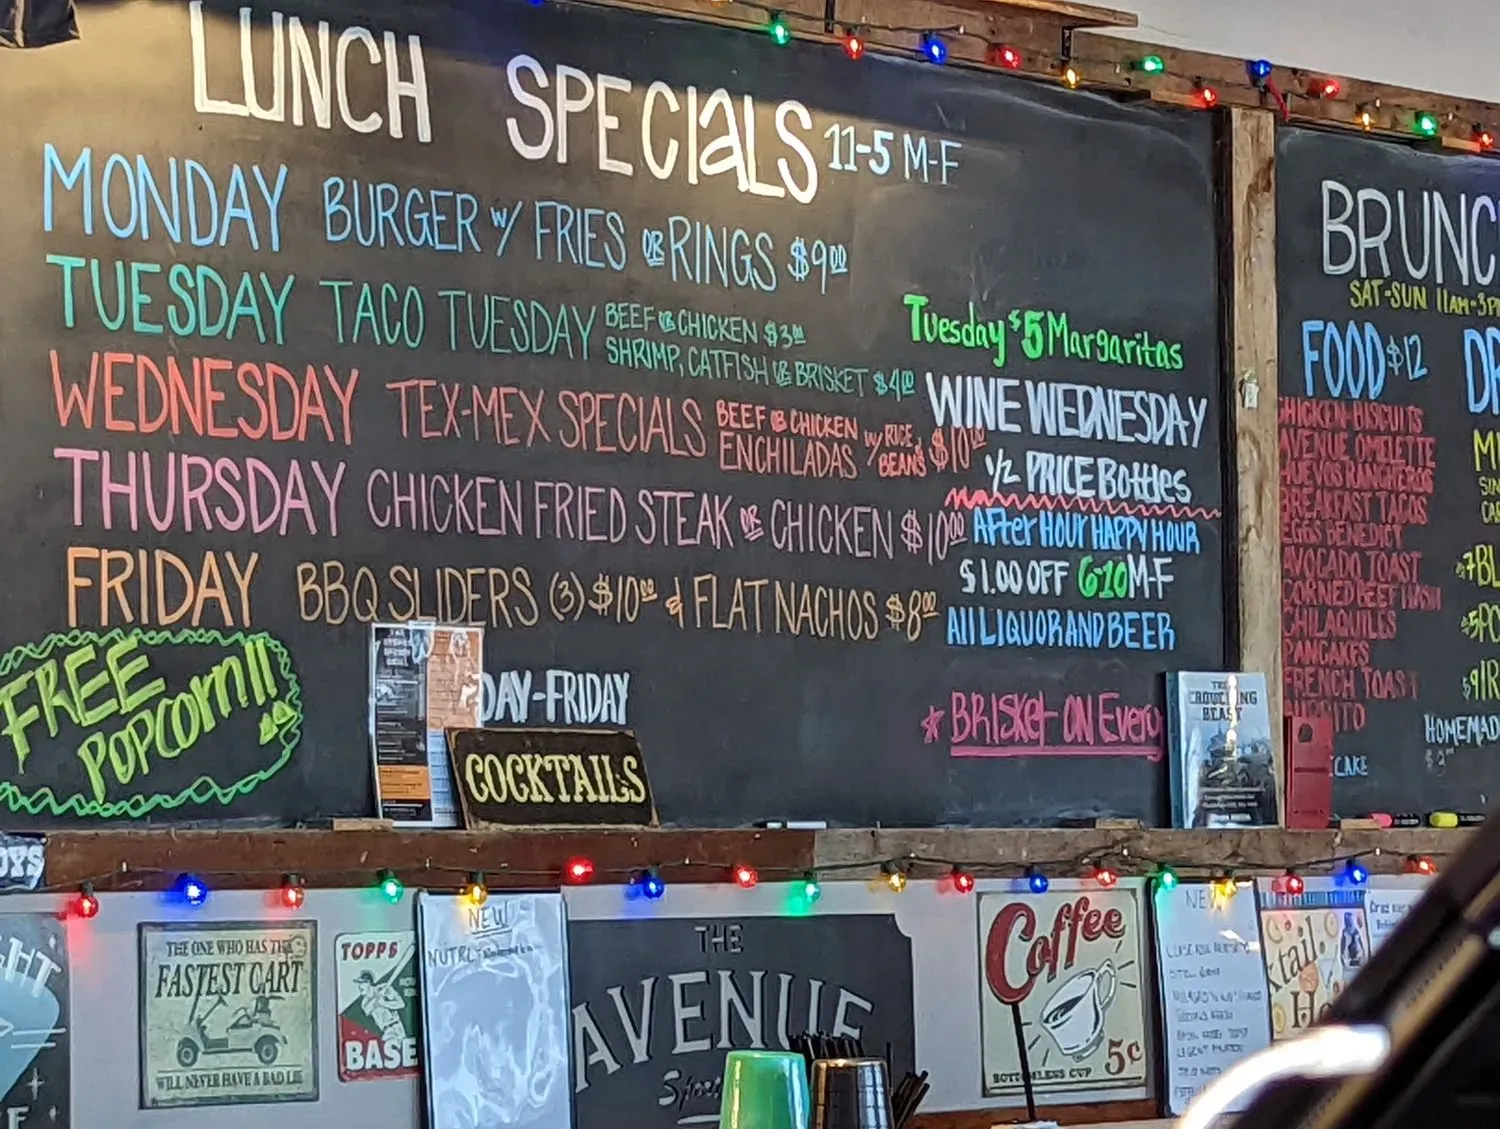 LUNCH SPECIALS 11-5 M-F
MONDAY BURGER w/ FRIES OR RINGS $9.00
TUESDAY TACO TUESDAY BEEF OR CHICKEN $3.00
SHRIMP, CATFISH OR BRISKET $4.00
WEDNESDAY TEX-MEX SPECIALS BEEF OR CHICKEN
ENCHILADAS w/ RICE & BEANS $10.00
THURSDAY CHICKEN FRIED STEAK OR CHICKEN $10.00
FRIDAY BBQ SLIDERS (3) $10.00 & FLAT NACHOS $8.00
FREE
POPCORN!!
DAY-FRIDAY
COCKTAILS
Tuesday $5 Margaritas
WINE WEDNESDAY
1/2 PRICE Bottles
AFTER HOUR HAPPY HOUR
$1.00 OFF 6-10 M-F
All LIQUOR AND BEER
* BRISKET ON EVERY
BRUNC
SAT-SUN 11AM-3P
FOOD $12
CHICKEN-BISCUITS
AVENUE OMELETTE
HUEVOS RANCHEROS
BREAKFAST TACOS
EGGS BENEDICT
AVOCADO TOAST
CORNED BEEF HASH
CHILAQUILES
PANCAKES
FRENCH TOAST
CAKE
DR
HOMEMAD
OYS
THE ONE WHO HAS THE
FASTEST CART
WILL NEVER HAVE A BAD LIE
TOPPS
BASE
NEW
THE
AVENUE
Coffee
5c
BOTTOMLESS CUP
NEW